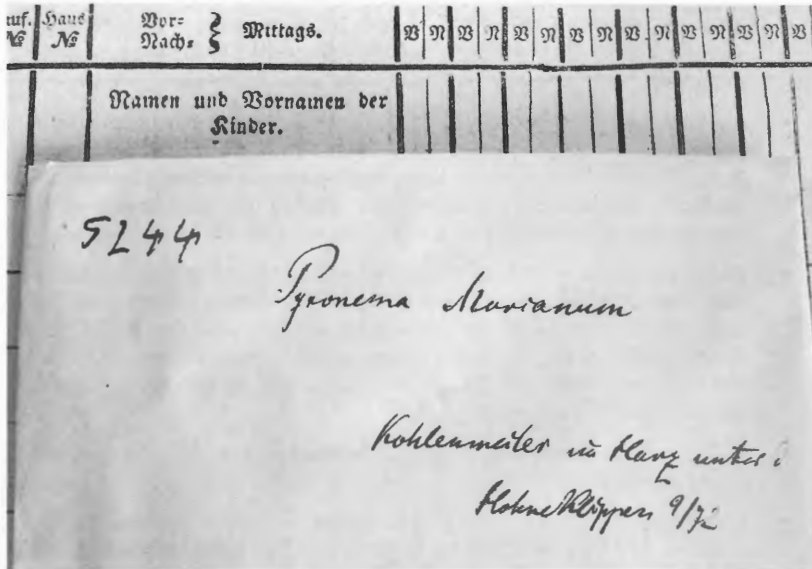 ruf. Haus Vor= Mittags. V N V N V N V N V N V N V N V
№ № Nach=
Namen und Vornamen der
Kinder.
5244
Pyronema Marianum
Kohlenmeiler im Harz unter
Hohneklippen 9/72